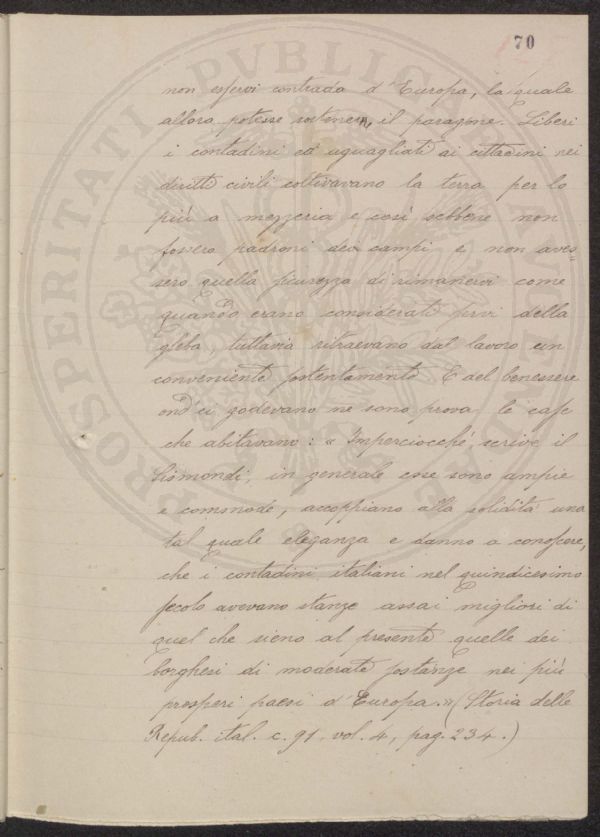 70
non esservi contrada d'Europa, la quale
allora potesse sostenerne il paragone. Liberi
i contadini ed uguagliati ai cittadini nei
diritti civili coltivavano la terra per lo
più a mezzeria e così sebbene non
fossero padroni dei campi e non aves=
sero quella sicurezza di rimanervi come
quando erano considerati servi della
gleba, tuttavia ritraevano dal lavoro un
conveniente sostentamento. E del benessere
ond'ei godevano ne sono prova le case
che abitavano: « Imperciocchè, scrive il
Sismondi, in generale esse sono ampie
e commode, accoppiano alla solidità una
tal quale eleganza e danno a conoscere,
che i contadini italiani nel quindicesimo
secolo avevano stanze assai migliori di
quel che sieno al presente quelle dei
borghesi di moderate sostanze nei più
prosperi paesi d'Europa.» (Storia delle
Repub. ital. c. 91. vol. 4, pag. 234.)
PROSPERITATI PVBLICAE AVGENDAE